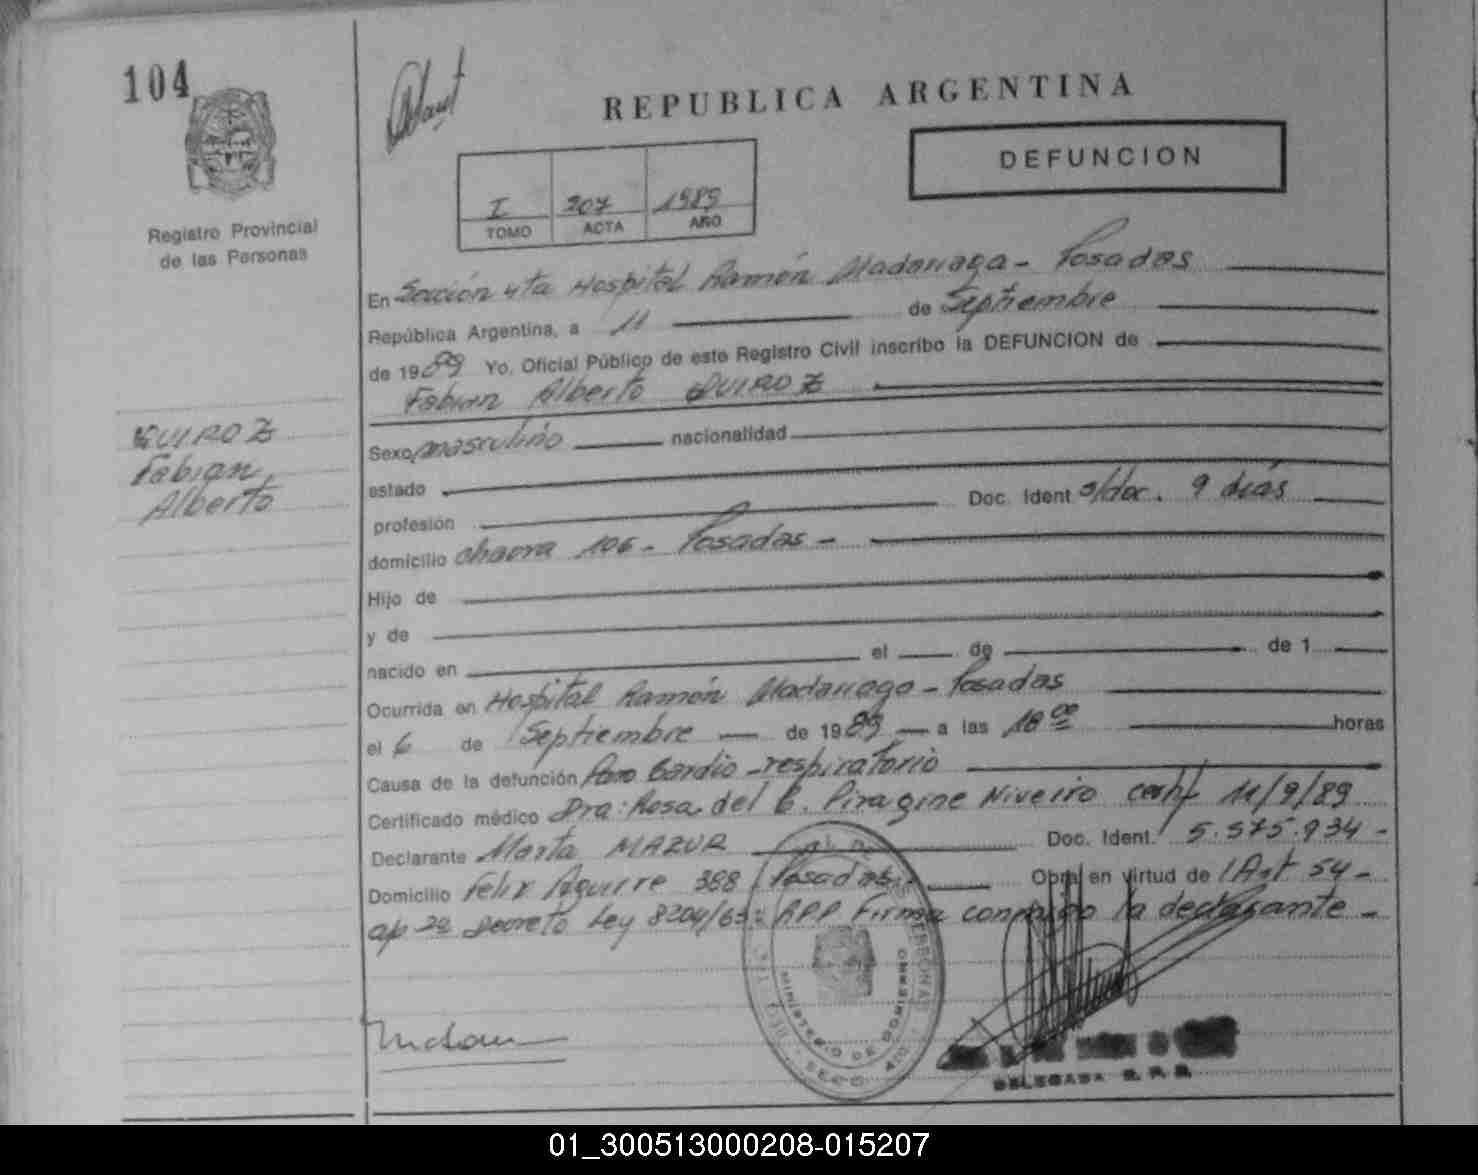 104
REPUBLICA ARGENTINA
DEFUNCION
I 207 1989
TOMO ACTA AÑO
Registro Provincial
de las Personas
QUIROZ
Fabian
Alberto
En Sección 4ta Hospital Ramón Madariaga - Posadas
República Argentina, a 11 de Septiembre
de 1989 Yo, Oficial Público de este Registro Civil inscribo la DEFUNCION de
Fabian Alberto QUIROZ
Sexo masculino nacionalidad
estado
profesión Doc. Ident s/doc. 9 días
domicilio chacra 106 - Posadas -
Hijo de
y de
nacido en el de de 1
Ocurrida en Hospital Ramón Madariaga - Posadas
el 6 de Septiembre de 1989 a las 18 00 horas
Causa de la defunción Paro Cardio-respiratorio
Certificado médico Dra: Rosa del C. Piragine Niveiro certif 11/9/89
Declarante Marta MAZUR Doc. Ident. 5.575.934 -
Domicilio Felix Aguirre 388 Posadas Obra en virtud de Art 54 -
ap 2º Decreto Ley 8204/63: RPP Firma conmigo la declarante -
MINISTERIO DE GOBIERNO
DELEGADA R. P. P.
01_300513000208-015207